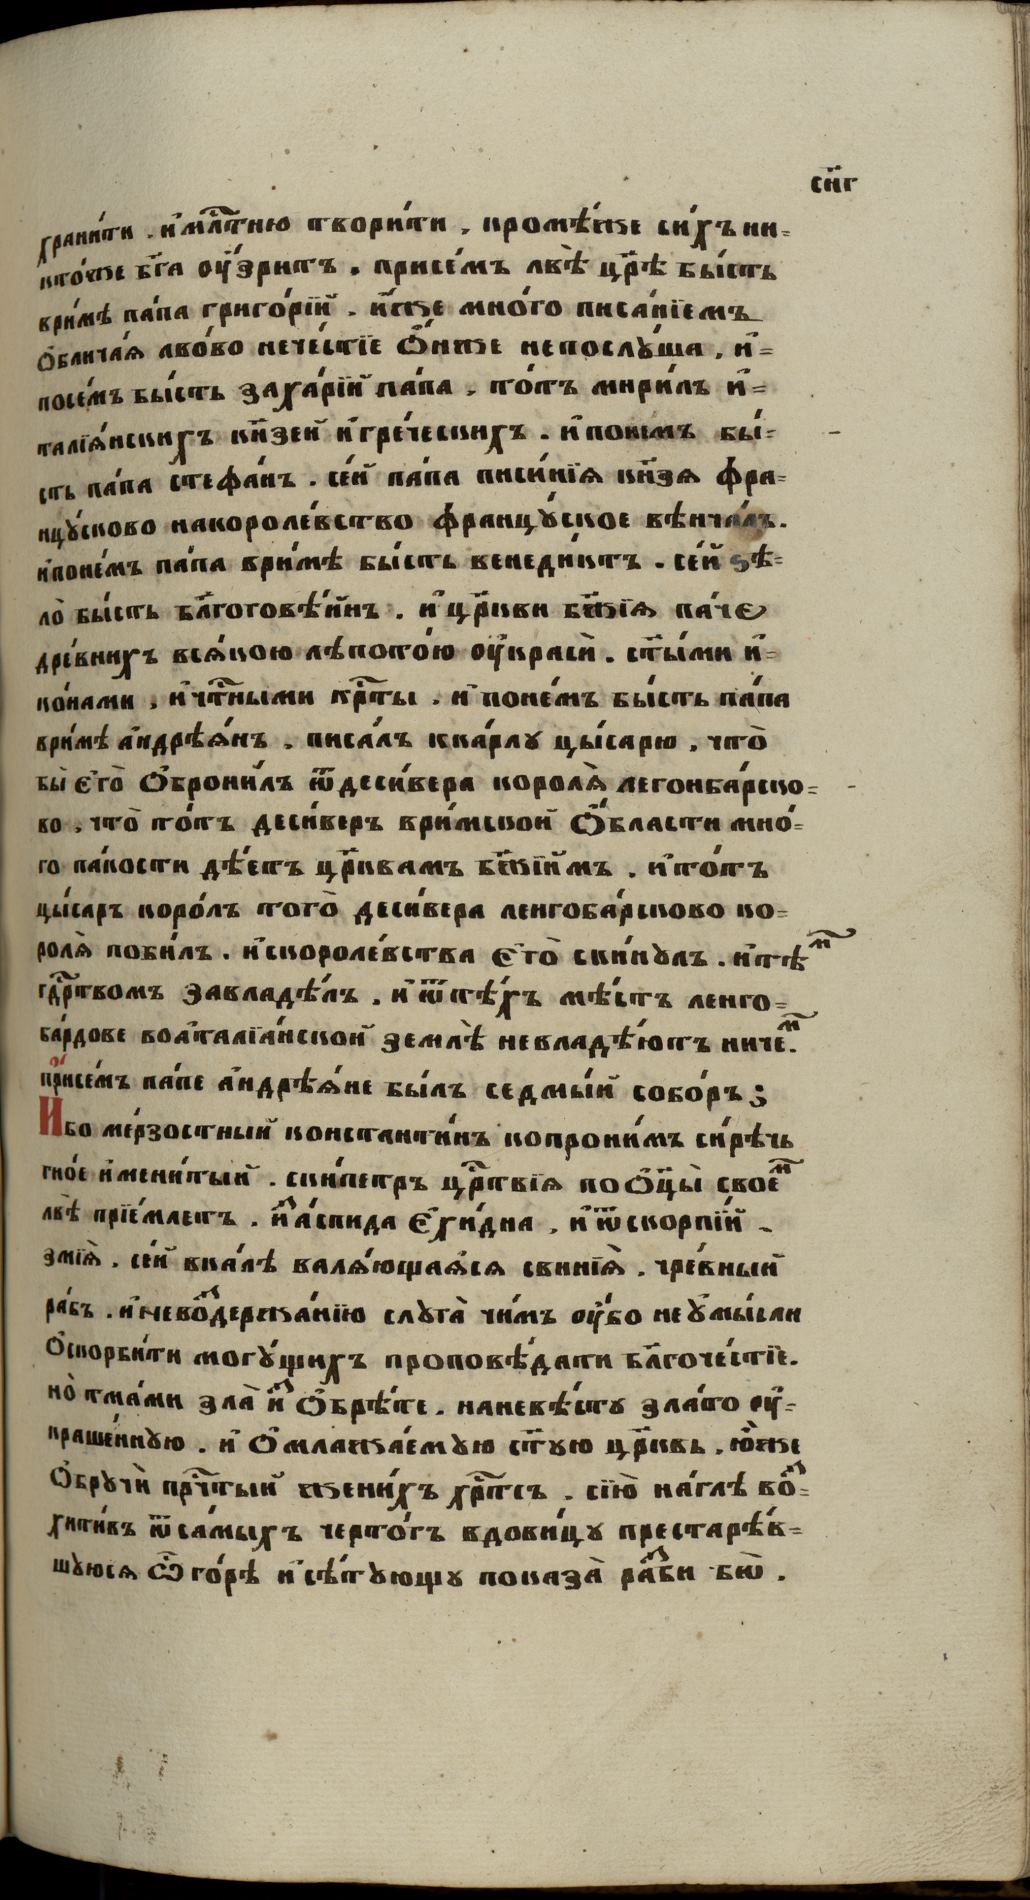 сн҃г
храни́ти . и҆ мл҇тню твори́ти , кромѣ́же си́хъ ни=
кто́же бг҃а оу҆́зритъ . присе́мъ лвѣ̀ цр҃ѣ бы́сть
ври́мѣ па́па григо́рїй . и҆́же мно́го писа́нїемъ
ѻ҆блича́ѧ лво́во нече́стїе ѻ҆́нже непослу́ша , и҆=
посе́мъ бы́сть заха́рїй па́па , то́тъ мири́лъ и҆=
талїѧ́нскихъ кн҃зей и҆ гре́ческихъ . и҆ поне́мъ бы́=
сть па́па стефа́нъ . се́й па́па писи́нїѧ кн҃зѧ фра=
нцу́сково накороле́вство францу́ское вѣнча́лъ .
и҆поне́мъ па́па ври́мѣ бы́сть венеди́ктъ . се́й ѕѣ=
ло̀ бы́сть бл҃гоговѣ́йнъ . и҆ цр҃кви бж҃їѧ па́че
дре́внихъ всѧ́кою лѣпото́ю оу҆красѝ . ст҃ы́ми и҆=
ко́нами , и҆ чт҇ными кр҇ты . и҆ поне́мъ бы́сть па́па
ври́мѣ а҆ндрѣѧ́нъ . писа́лъ кка́рлу цы́сарю , что̀
бы̀ є҆го̀ ѻ҆брони́лъ ѿ деси́вера королѧ̀ легонба́рско=
во , что̀ то́тъ деси́веръ ври́мской ѻ҆́бласти мно́=
го па́кости дѣ́етъ цр҃квамъ бж҃їимъ . и҆ то́тъ
цы́саръ коро́лъ того̀ деси́вера ленгоба́рсково ко=
ролѧ̀ поби́лъ . и҆ скороле́вства є҆го̀ ски́нулъ . и҆ тѣм
гдр҇твомъ завладѣ́лъ . и҆ ѿтѣ́хъ мѣ́стъ ленго=
ба́рдове воа҆талїа́нской землѣ̀ невладѣ́ютъ ничем .
присе́мъ па́пе а҆ндрѣѧ́не бы́лъ седмы́й собо́ръ ;
И҆бо ме́рзостный константи́нъ копрони́мъ си́рѣчь
гно́е и҆мени́тый . ски́петръ цр҇твїѧ по ѻ҆ц҃ы̀ своем
лвѣ̀ прїе́млетъ . и҆ а́спида є҆хи́дна , и҆ ѿскорпі́й
змїѧ̀ . се́й вка́лѣ валѧ́ющаѧсѧ свинїѧ̀ . чре́вный
ра́бъ . и҆ невоздержа́нїю слуга̀ чи́мъ оу҆́бо не у҆мы́сли
ѻ҆скорби́ти могу́щихъ проповѣ́дати бл҃гоче́стїе .
но̀ тма́ми зла̀ и҆зѻ҆брѣ́те . наневѣ́сту зла́то оу҆=
краше́нную . и҆ ѻ҆млажа́емую ст҃ую цр҃квь . ю҆́же
ѻ҆бручѝ пр҇чтый жени́хъ хр҇тсъ . сїю̀ на́глѣ вос=
хити́въ ѿ са́мыхъ черто́гъ вдови́цу престарѣ́в=
шуюсѧ ѿ го́рѣ и҆ сѣ́тующу показа̀ разви бѡ̀ .